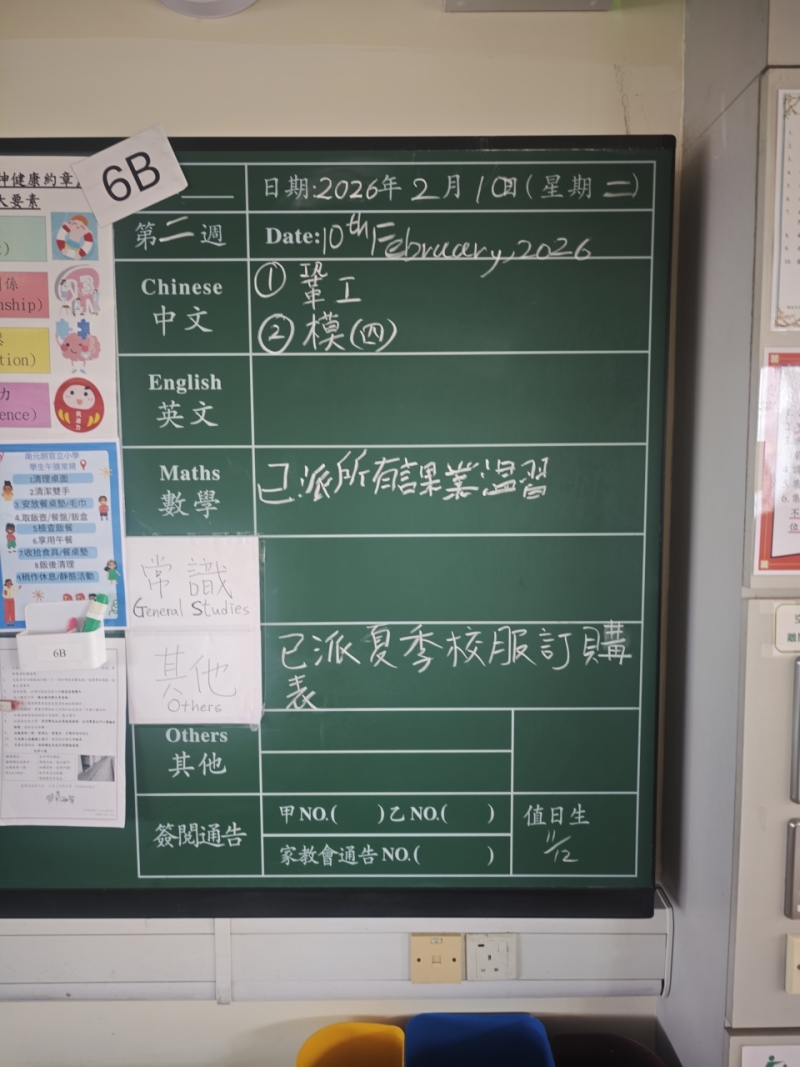 神健康約章
大要素
6B
nship)
tion)
力
ence)
南元朗官立小學
學生午膳常規
1清理桌面
2清潔雙手
3.安放餐桌墊/毛巾
4.取飯壺/餐盤/飯盒
5檢查飯餐
6.享用午餐
7收拾食具/餐桌墊
8飯後清理
9稍作休息/靜態活動
6B
日期:2026年2月10日(星期二)
第二週
Date:10th February,2026
Chinese
中文
① 鞏工
② 模(四)
English
英文
Maths
數學
已派所有課業溫習
常識
General Studies
其他
Others
已派夏季校服訂購
表
Others
其他
簽閱通告
甲NO.( )乙NO.( )
家教會通告NO.( )
值日生
11/12